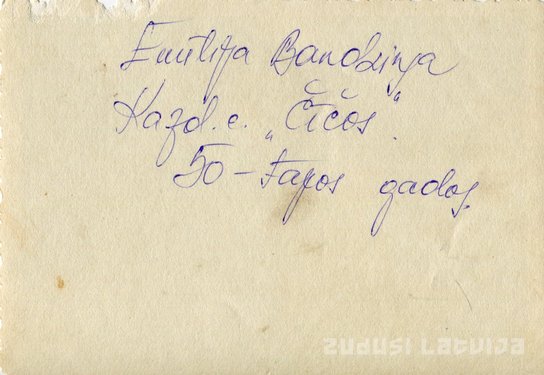 Emīlija Bandziņa
Kazd. c. „Čičos".
50-tajos gados.
ZUDUSI LATVIJA